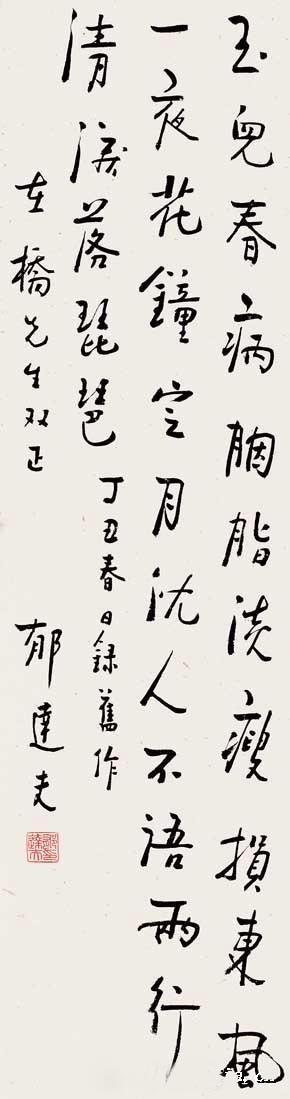 玉兒春病胭脂淡瘦損東風
一夜花鐘定月沈人不語兩行
清淚落琵琶
丁丑春日録舊作
左橋先生双正
郁達夫